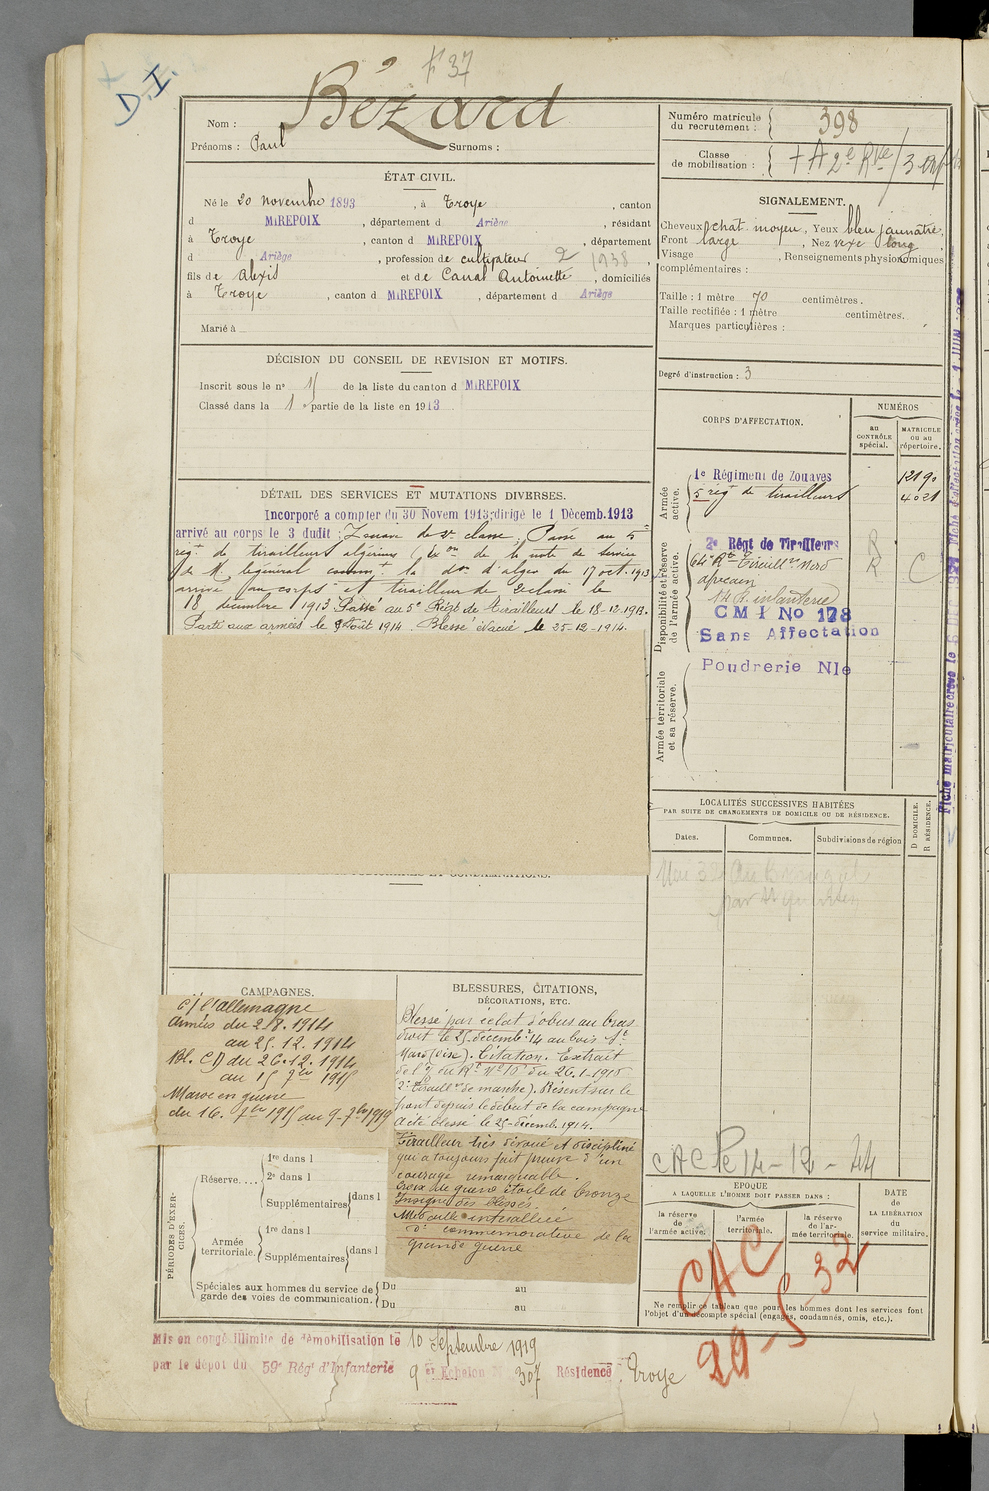 D.I.
F 37
Nom : Bézard
Prénoms : Paul Surnoms :
ÉTAT CIVIL.
Né le 20 novembre 1893, à Troye, canton
d MIREPOIX, département d Ariège, résidant
à Troye, canton d MIREPOIX, département
d Ariège, profession de cultivateur 2 1938
fils de Alexis et de Canal Antoinette, domiciliés
à Troye, canton d MIREPOIX, département d Ariège
Marié à
DÉCISION DU CONSEIL DE REVISION ET MOTIFS.
Inscrit sous le n° 15 de la liste du canton d MIREPOIX
Classé dans la 1e partie de la liste en 1913
DÉTAIL DES SERVICES ET MUTATIONS DIVERSES.
Incorporé a compter du 30 Novem 1913; dirigé le 1 Décemb. 1913
arrivé au corps le 3 dudit ; Zouave de 2e classe ; Passé au 5e
régt de tirailleurs algériens (Ex on de la note de service
de M. le général commt la don d'alger du 17 oct. 1913
arrivé au corps et tirailleur de 2e classe le
18 décembre 1913. Passé au 5e Régt de tirailleurs le 18.12.1913.
Parti aux armées le Août 1914. Blessé évacué le 25-12-1914.
ET CONDAMNATIONS.
CAMPAGNES.
c/ l'allemagne
armées du 2.8.1914
au 25.12.1914
Bl. CD du 26.12.1914
au 15 7bre 1915
Maroc en guerre
du 16. 7bre 1915 au 9-7bre 1919
BLESSURES, CITATIONS,
DÉCORATIONS, ETC.
Blessé par éclat d'obus au bras
droit le 25 décembre 14 au bois St
Marc (oise). Citation. Extrait
de l'o du Rt N° 10 du 26.1-1915
2e Tiraillrs de marche). Présent sur le
front depuis le début de la campagne
a été blessé le 25-décemb. 1914.
Tirailleur très dévoué et discipliné
qui a toujours fait preuve d'un
courage remarquable.
Croix de guerre étoile de bronze
Insigne des blessés.
Médaille interalliée
d° commémorative de la
grande guerre
PÉRIODES D'EXERCICES.
Réserve....
1re dans l
2e dans l
Supplémentaires dans l
Armée territoriale.
1re dans l
Supplémentaires dans l
Spéciales aux hommes du service de garde des voies de communication.
Du au
Du au
Mis en congé illimité de démobilisation le 10 Septembre 1919
par le dépot du 59e Régt d'Infanterie 9e Echelon N° 307 Résidence : Troye
Numéro matricule du recrutement : 398
Classe de mobilisation : + A 2e Rve / 3 enf
SIGNALEMENT.
Cheveux chat. moyen, Yeux bleu jaunâtre,
Front large, Nez vexe long,
Visage , Renseignements physionomiques
complémentaires :
Taille : 1 mètre 70 centimètres.
Taille rectifiée : 1 mètre centimètres.
Marques particulières :
Degré d'instruction : 3
CORPS D'AFFECTATION.
NUMÉROS
au CONTRÔLE spécial.
MATRICULE ou au répertoire.
Armée active.
1e Régiment de Zouaves 12190
5 régt de tirailleurs 4021
Disponibilité et réserve de l'armée active.
2e Régt de Tirailleurs R
64e Rt Tiraillrs Nord R C
africain
14 R. infanterie
CMI No 128
Sans Affectation
Poudrerie Nle
Armée territoriale et sa réserve.
LOCALITÉS SUCCESSIVES HABITÉES
PAR SUITE DE CHANGEMENTS DE DOMICILE OU DE RÉSIDENCE.
Dates. Communes. Subdivisions de région
D DOMICILE. R RÉSIDENCE.
par St Quentin
CAC le 14-12-44
ÉPOQUE
A LAQUELLE L'HOMME DOIT PASSER DANS :
la réserve de l'armée active.
l'armée territoriale.
la réserve de l'armée territoriale.
DATE de LA LIBÉRATION du service militaire.
CAC
29-5-32
Ne remplir ce tableau que pour les hommes dont les services font
l'objet d'un décompte spécial (engagés, condamnés, omis, etc.).
Fiche matriculaire créée le 6